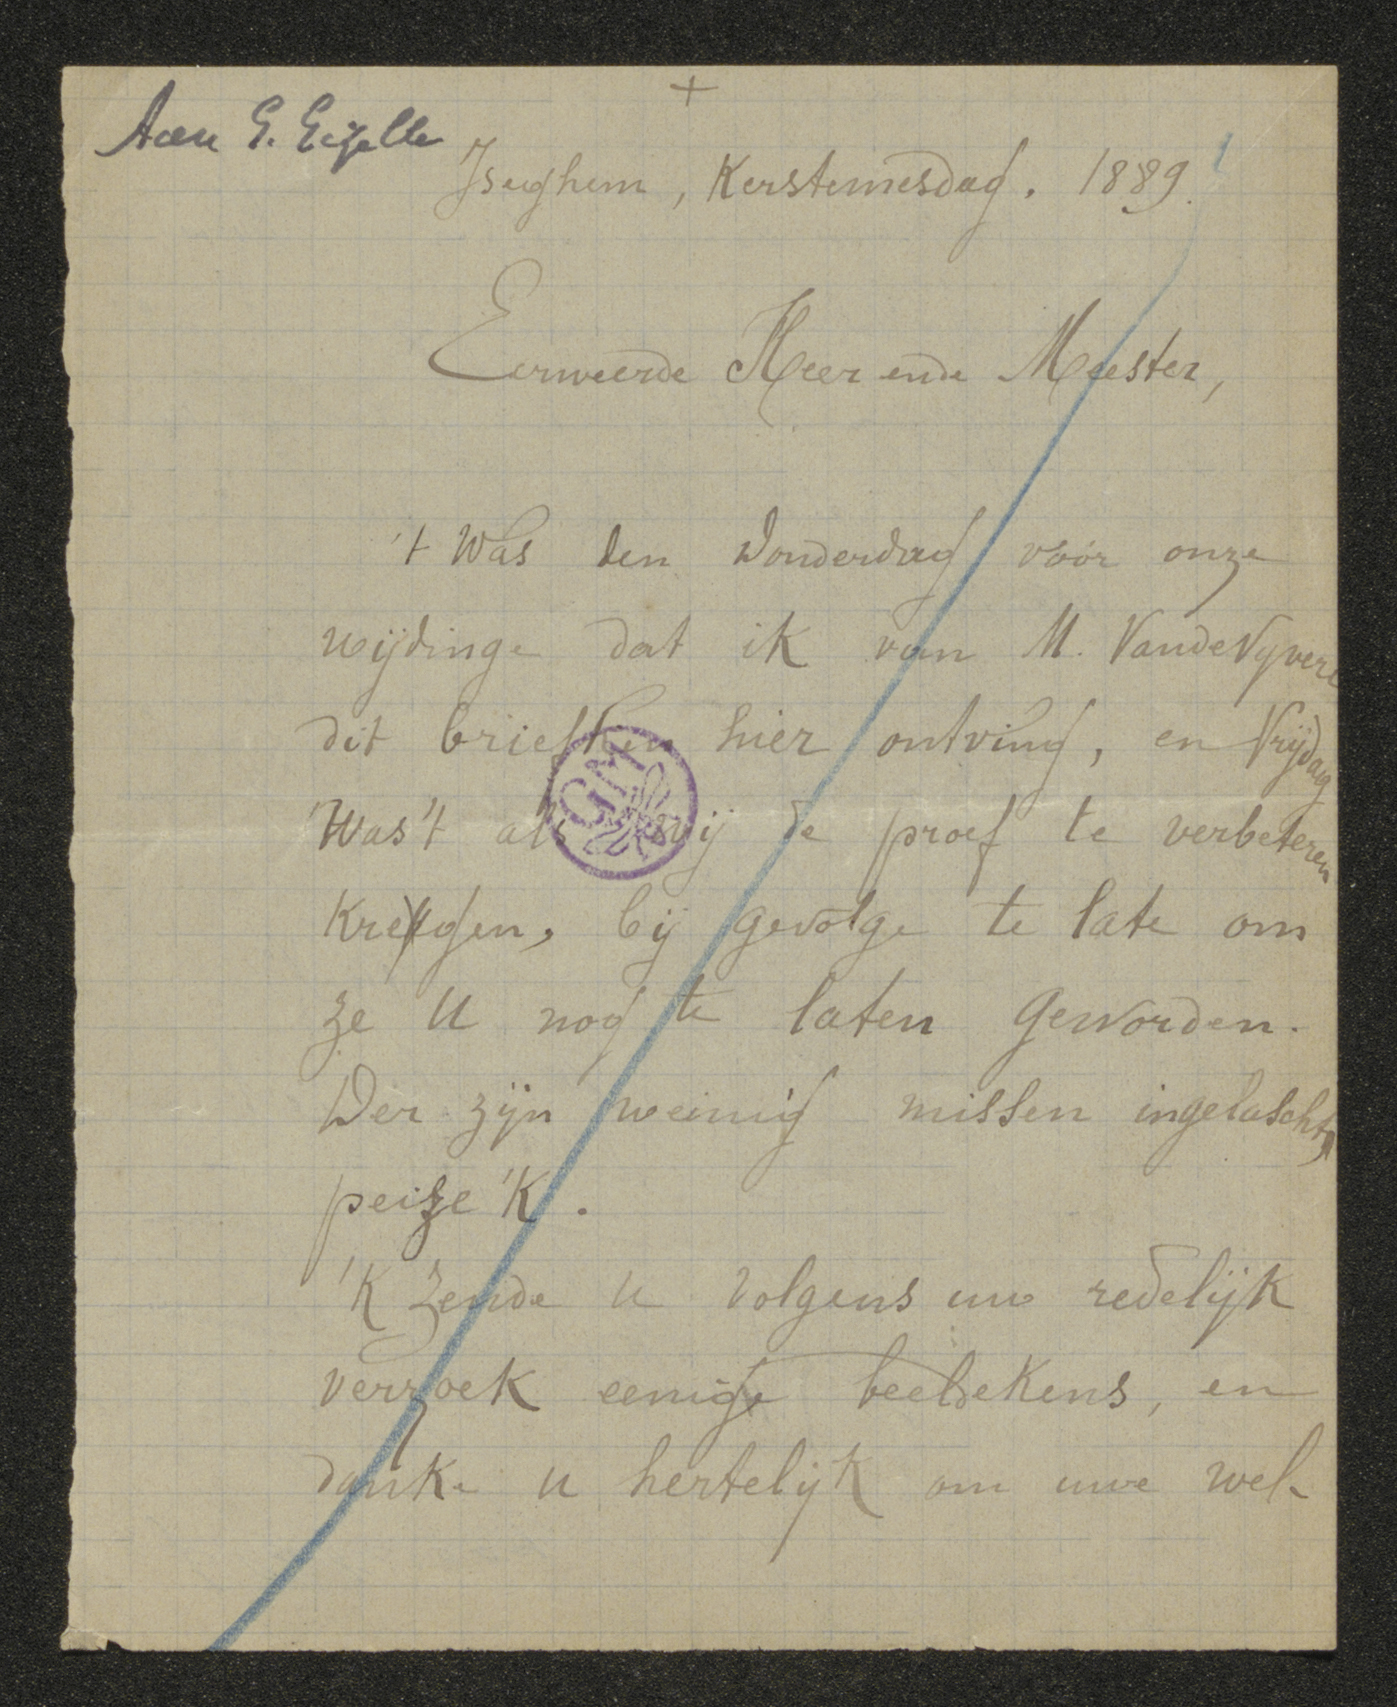 +
Aan G. Gezelle
Iseghem, Kerstemesdag. 1889.
Eerweerde Heer ende Meester,
't Was den Donderdag vóór onze
wijdinge dat ik van M. VandeVyvere
dit briefken hier ontving, en Vrijdag
Was't als wij de proef te verbeteren
kregen, bij gevolge te late om
ze U nog te laten geworden.
GM
Der zijn weinig missen ingelascht,
peize 'k.
'K Zende u volgens uw redelijk
verzoek eenige beeldekens, en
danke u hertelijk om uwe wel-